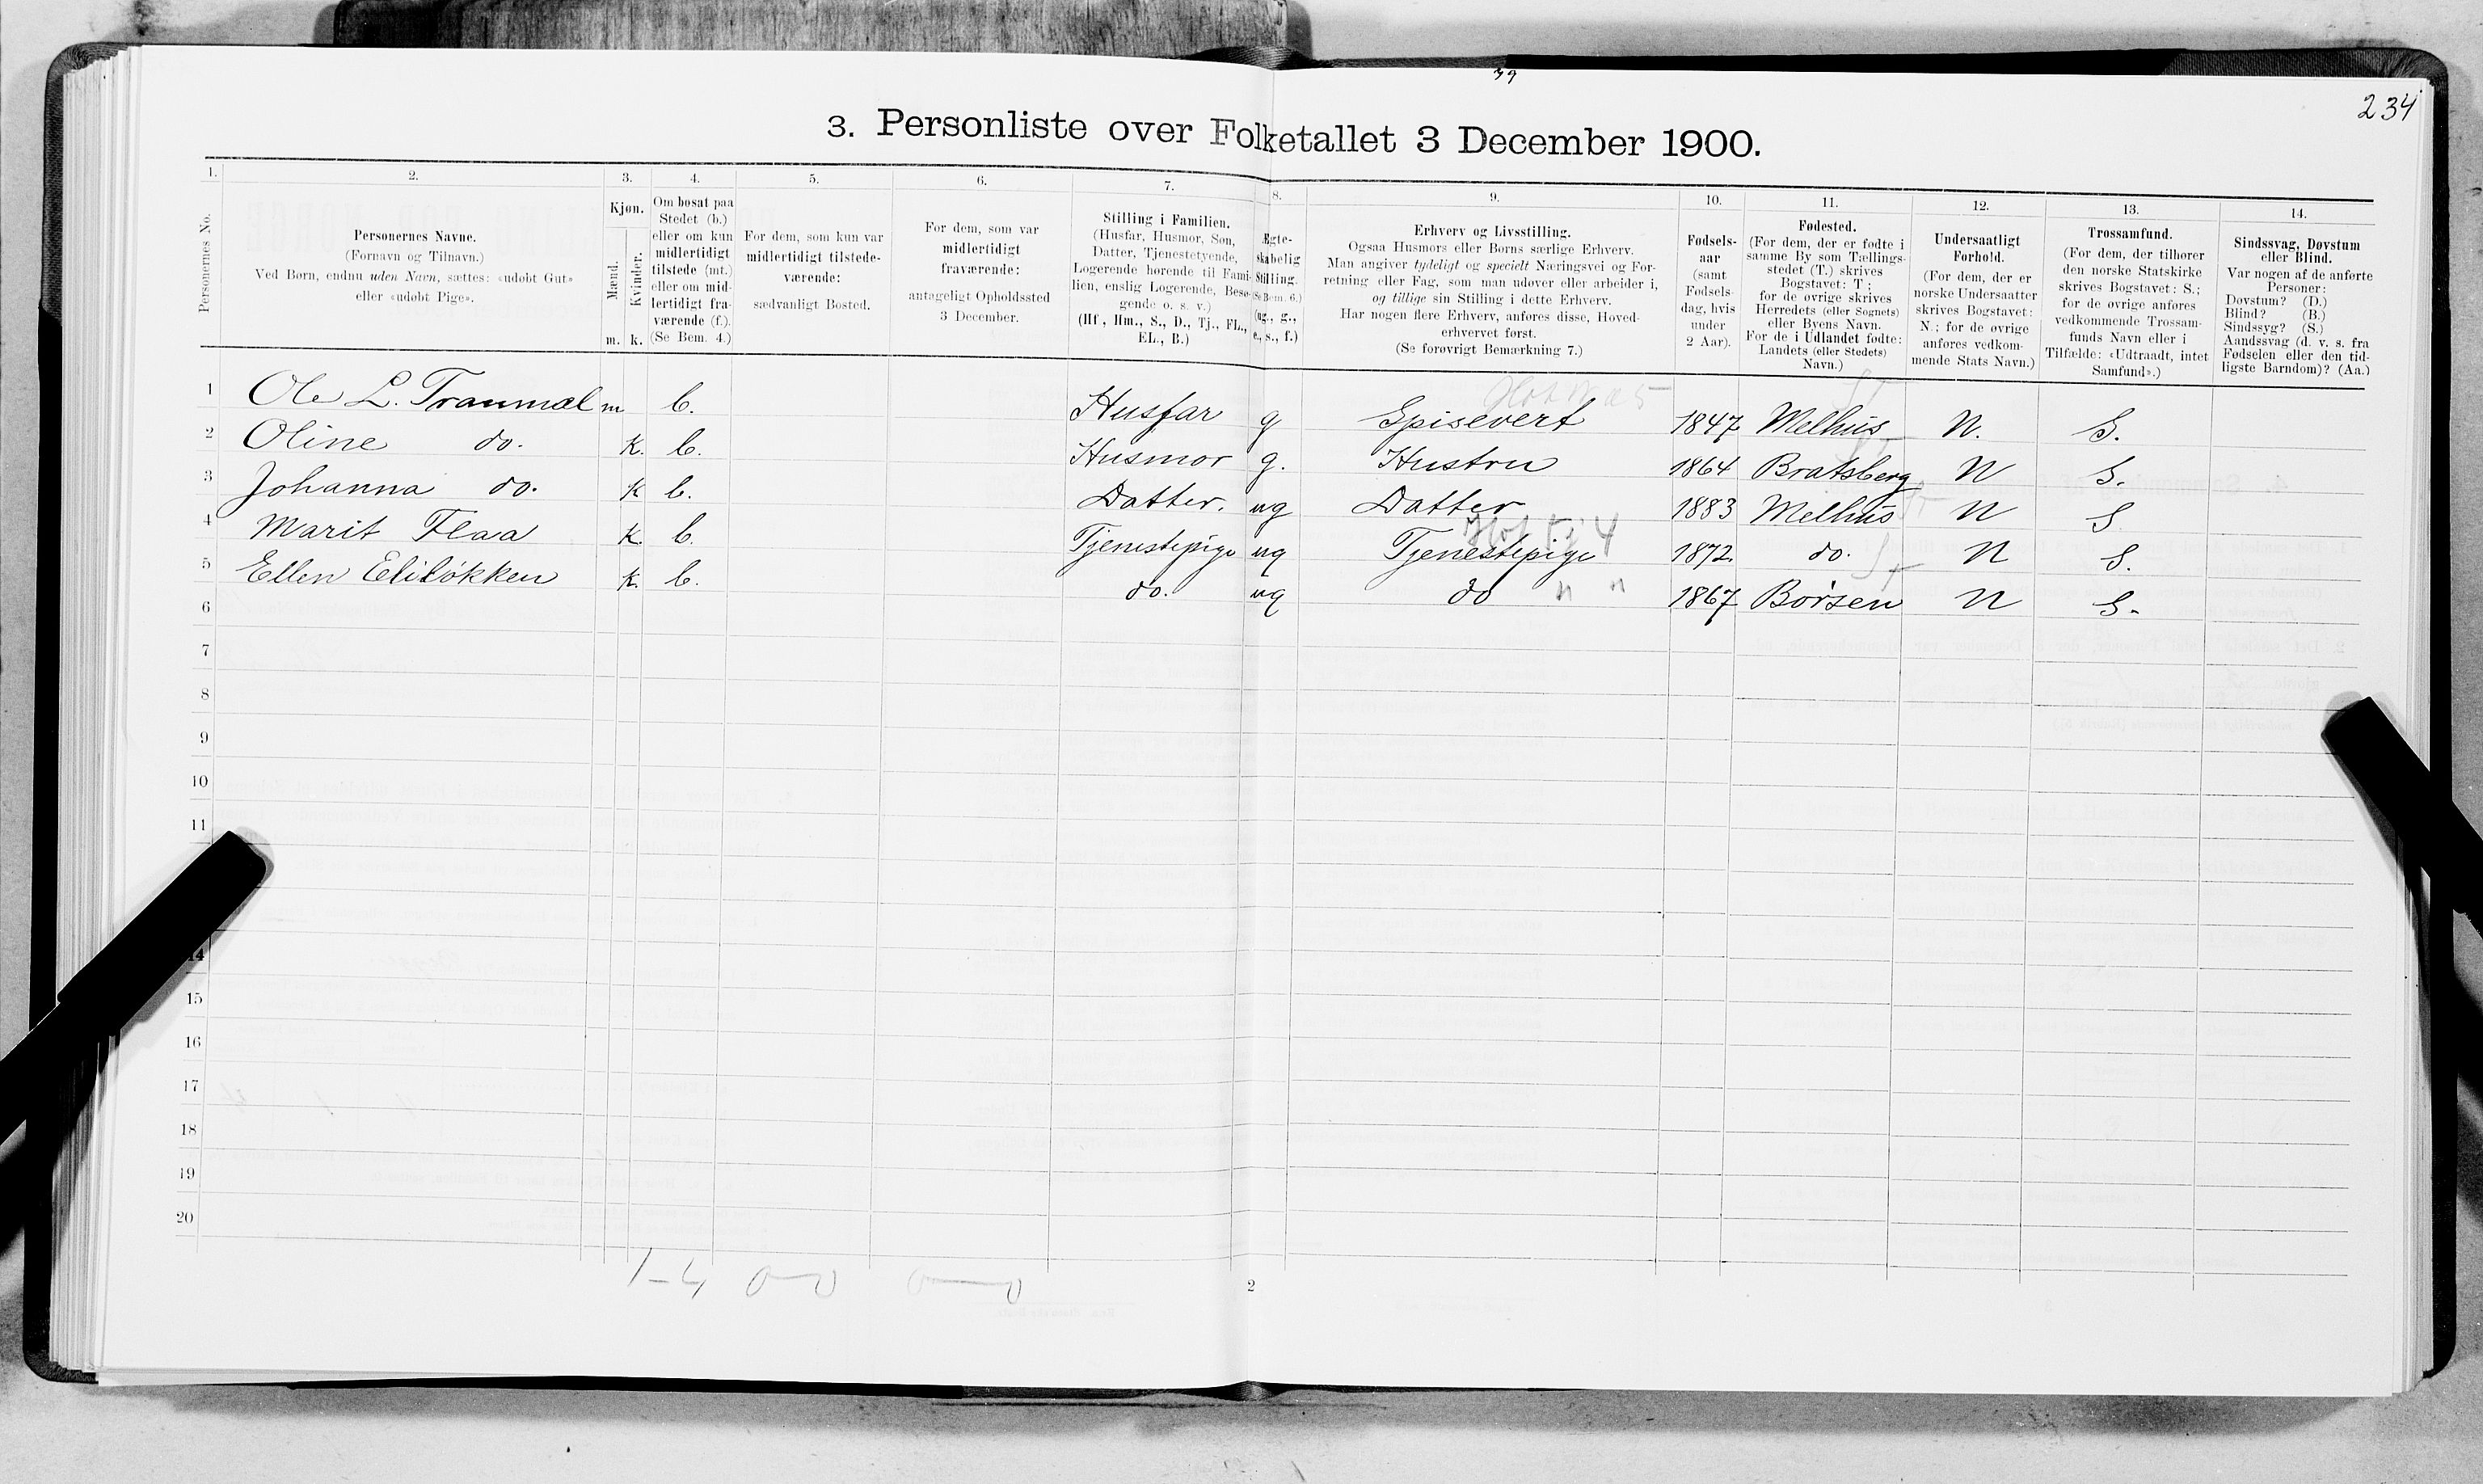 79
234
3. Personliste over Folketallet 3 December 1900.
1. 2. 3. 4. 5. 6. 7. 8. 9. 10. 11. 12. 13. 14.
Personernes No.
Personernes Navne.
(Fornavn og Tilnavn.)
Ved Børn, endnu uden Navn, sættes: «udøbt Gut»
eller «udøbt Pige».
Kjøn.
Mænd.
Kvinder.
m. k.
Om bosat paa
Stedet (b.)
eller om kun
midlertidigt
tilstede (mt.)
eller om mid-
lertidigt fra-
værende (f.).
(Se Bem. 4.)
For dem, som kun var
midlertidigt tilstede-
værende:
sædvanligt Bosted.
For dem, som var
midlertidigt
fraværende:
antageligt Opholdssted
3 December.
Stilling i Familien.
(Husfar, Husmor, Søn,
Datter, Tjenestetyende,
Logerende hørende til Fami-
lien, enslig Logerende, Besø-
gende o. s. v.)
(Hf., Hm., S., D., Tj., FL.,
EL., B.)
Ægte-
skabelig
Stilling.
(Se Bem. 6.)
(ug., g.,
e., s., f.)
Erhverv og Livsstilling.
Ogsaa Husmors eller Børns særlige Erhverv.
Man angiver tydeligt og specielt Næringsvei og For-
retning eller Fag, som man udøver eller arbeider i,
og tillige sin Stilling i dette Erhverv.
Har nogen flere Erhverv, anføres disse, Hoved-
erhvervet først.
(Se forøvrigt Bemærkning 7.)
Fødsels-
aar
(samt
Fødsels-
dag, hvis
under
2 Aar).
Fødested.
(For dem, der er fødte i
samme By som Tællings-
stedet (T.) skrives
Bogstavet: T;
for de øvrige skrives
Herredets (eller Sognets)
eller Byens Navn.
For de i Udlandet fødte:
Landets (eller Stedets)
Navn.)
Undersaatligt
Forhold.
(For dem, der er
norske Undersaatter
skrives Bogstavet:
N.; for de øvrige
anføres vedkom-
mende Stats Navn.)
Trossamfund.
(For dem, der tilhører
den norske Statskirke
skrives Bogstavet: S.;
for de øvrige anføres
vedkommende Trossam-
funds Navn eller i
Tilfælde: «Udtraadt, intet
Samfund».)
Sindssvag, Døvstum
eller Blind.
Var nogen af de anførte
Personer:
Døvstum? (D.)
Blind? (B.)
Sindssyg? (S.)
Aandssvag (d. v. s. fra
Fødselen eller den tid-
ligste Barndom)? (Aa.)
1 Ole L. Tranmæl m b. Husfar g Spisevert 1847 Melhus N. S.
2 Oline do. k. b. Husmor g. Hustru 1864 Bratsberg N S.
3 Johanna do. k b. Datter. ug Datter 1883 Melhus N S
4 Marit Flaa k. b. Tjenestepige ug Tjenestepige 1872 do. N S.
5 Ellen Eliløkken k. b. do. ug do " " 1867 Børsen N S.
6
7
8
9
10
11
14
15
16
17
18
19
20
1-4 0-0 0-0
2